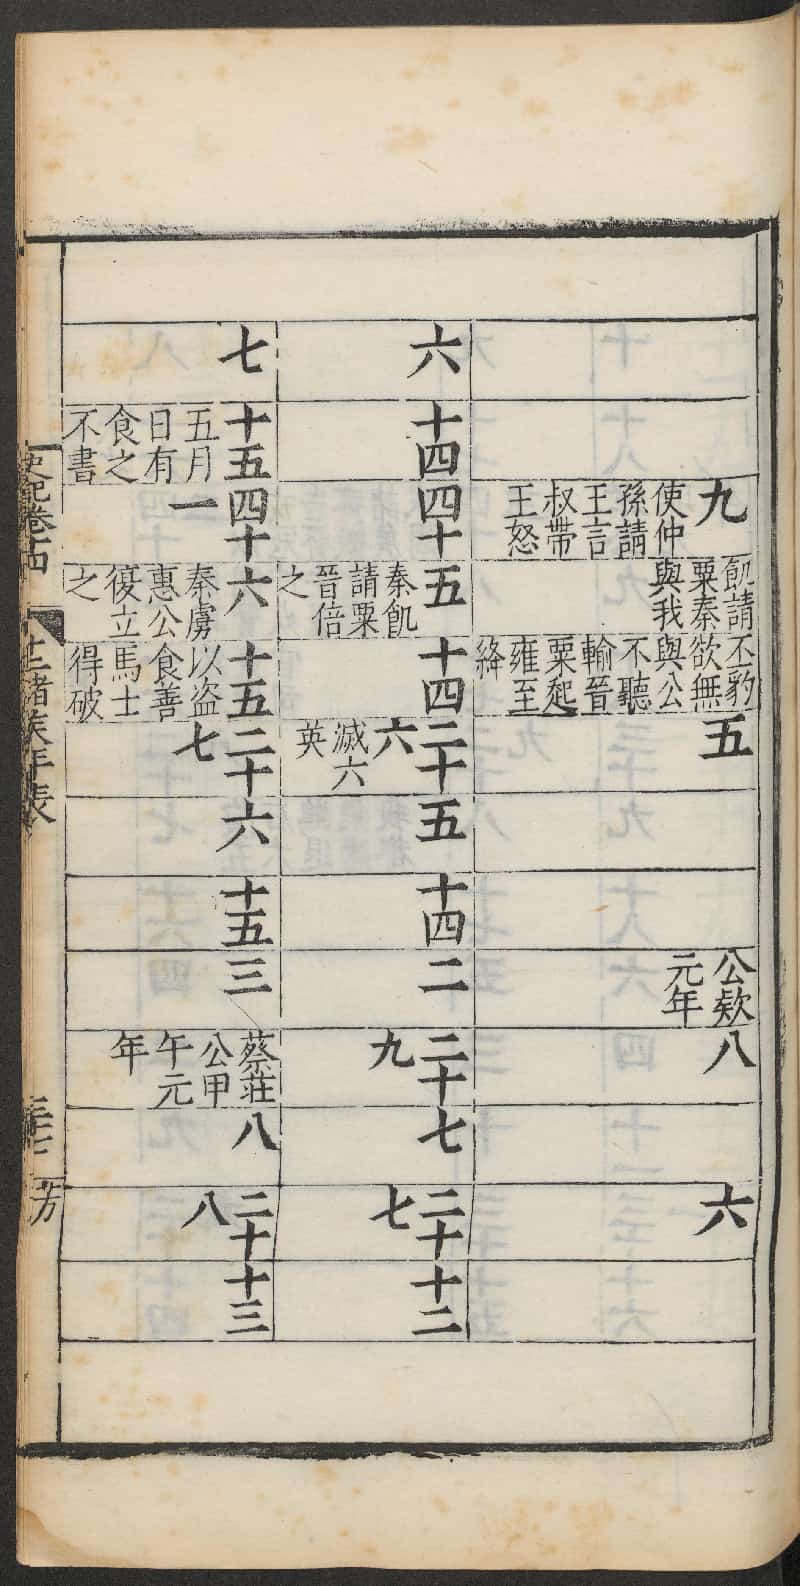 九
使仲
孫請
王言
叔帶
王怒
飢請
粟秦
與我
丕豹
欲無
與公
不聽
輸晉
粟起
雍至
絳
五
公欵
元年
八
六
六
十四
四十
五
秦飢
請粟
晉倍
之
十四
二十
六
滅六
英
五
十四
二
二十
九
七
二十
七
十二
七
十五
五月
日有
食之
不書
四十
一
六
秦虜
惠公
復立
之
十五
以盜
食善
馬士
得破
二十
七
六
十五
三
蔡莊
公甲
午元
年
八
二十
八
十三
史記卷十四
十二諸侯年表